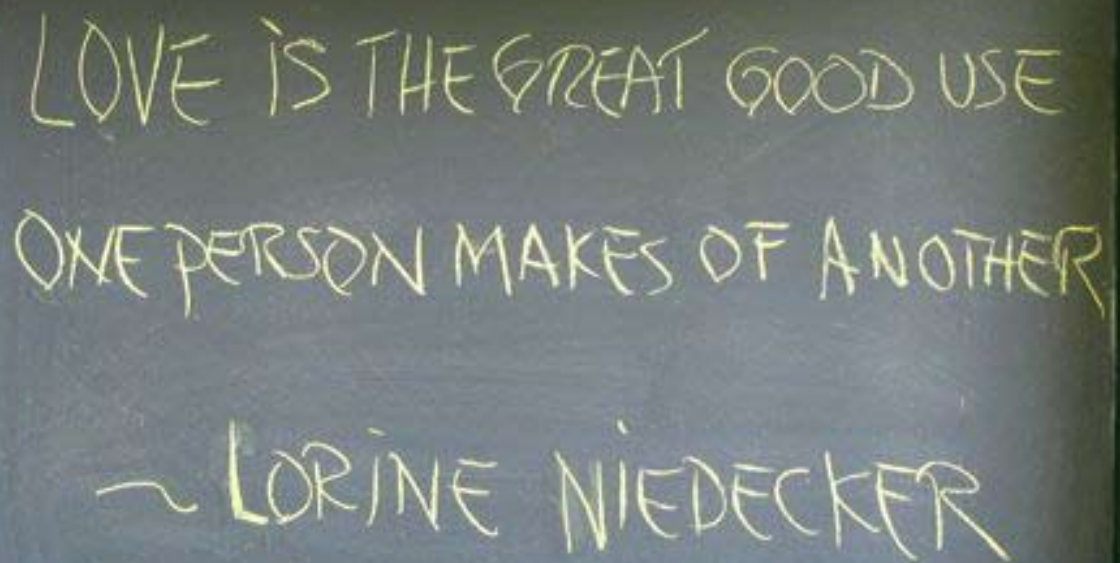 LOVE iS THE GREAT GOOD USE
ONE PERSON MAKES OF ANOTHER
~ LORiNE NiEDECKER